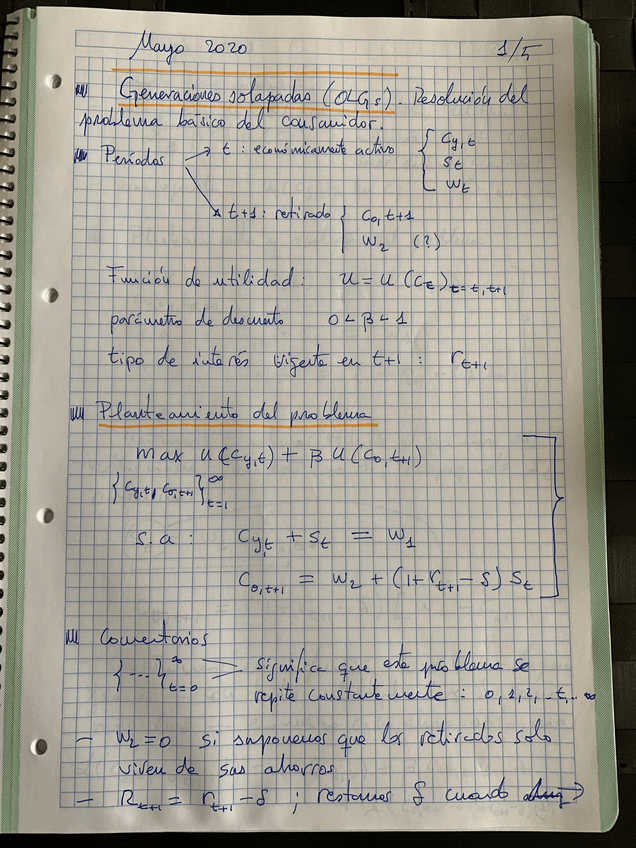 Mayo 2020 1/5
Generaciones solapadas (OLGs). Resolución del
problema básico del consumidor.
Períodos → t : económicamente activo { c_{y,t}
s_t
w_t
t+1 : retirado { c_{o,t+1}
w_2 (?)
Función de utilidad : u = u(c_t)_{t=t,t+1}
parámetro de descuento 0 < β < 1
tipo de interés vigente en t+1 : r_{t+1}
Planteamiento del problema
max u(c_{y,t}) + β u(c_{o,t+1})
{c_{y,t}, c_{o,t+1}}_{t=1}^∞
s.a : c_{y,t} + s_t = w_1
c_{o,t+1} = w_2 + (1+r_{t+1}-δ) s_t
Comentarios
{ --- }_{t=0}^∞ significa que este problema se
repite constantemente : 0, 1, 2, .. t, .. ∞
- w_2 = 0 si suponemos que los retirados solo
viven de sus ahorros
- R_{t+1} = r_{t+1} - δ ; restamos δ cuando →